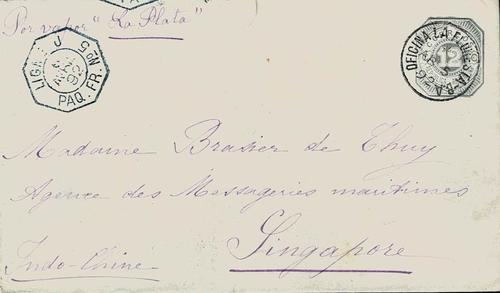 Por vapor "La Plata"
LIGNE J PAQ. FR. Nº5
92
OFICINA LA FLORESTA-R-A
12
Madame Brasier de Thuy
Agence des Messageries maritimes
Singapore
Indo-Chine